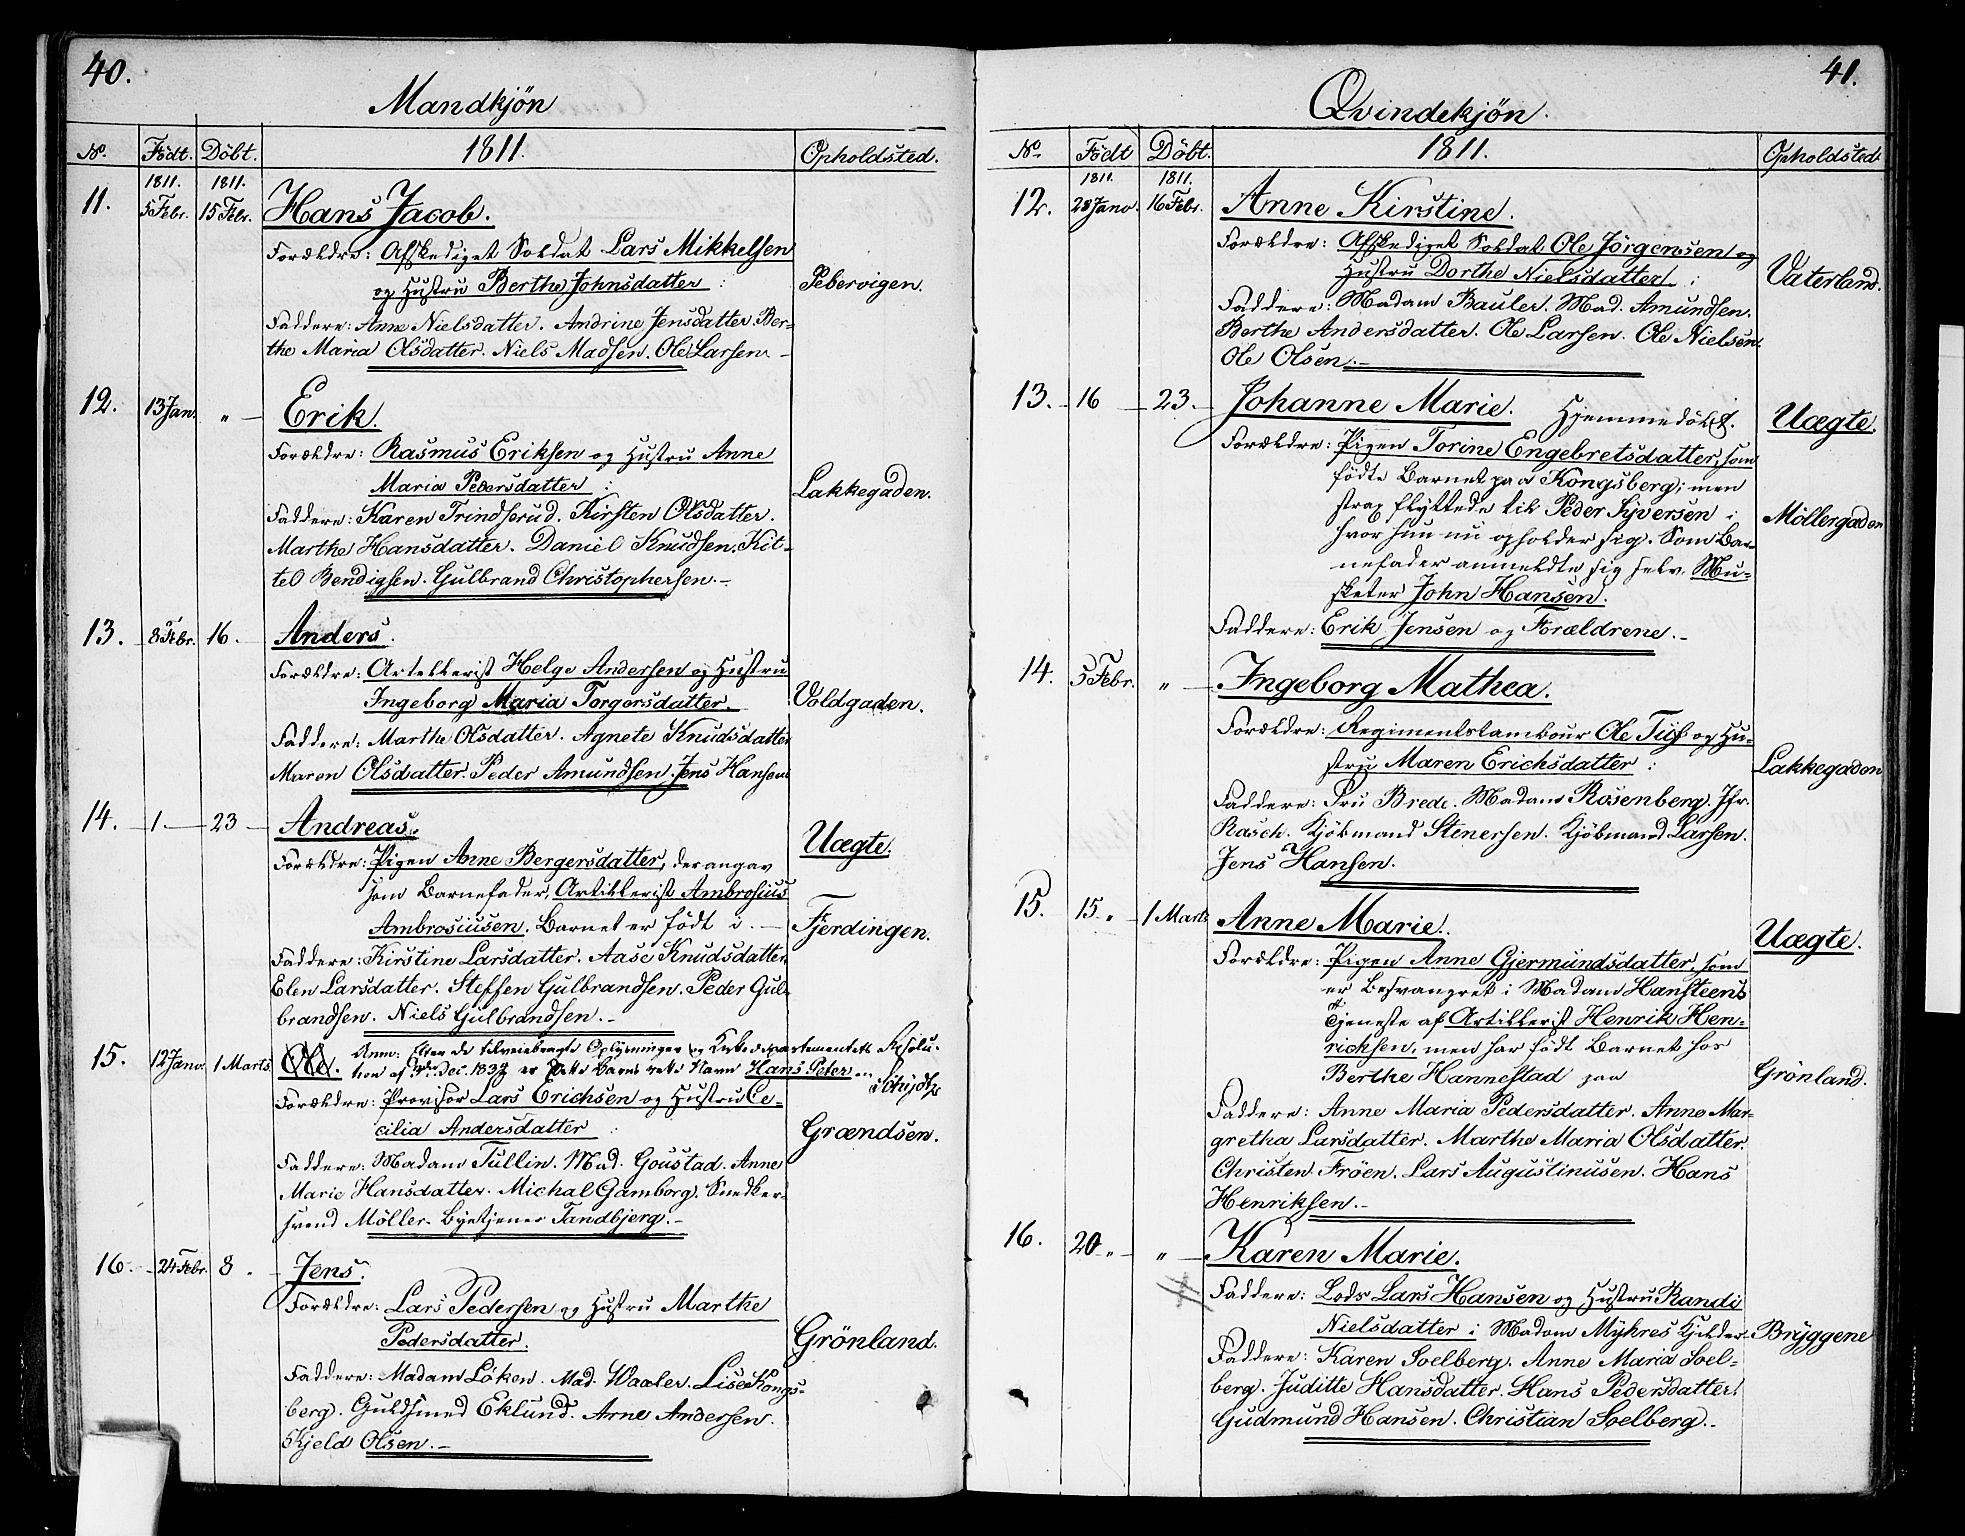 40.
Mandkjön
No. Födt. Döbt. 1811. Opholdsted.
1811. 1811.
11. 5 Febr. 15 Febr. Hans Jacob.
Forældre: Afskediget Soldat Lars Mikkelsen
og Hustru Berthe Johnsdatter : Pebervigen.
Faddere: Anne Nielsdatter. Andrine Jensdatter. Ber-
the Maria Olsdatter. Niels Madsen. Ole Larsen. –
12. 13 Jan. „ – Erik.
Forældre: Rasmus Eriksen og Hustru Anne
Maria Pedersdatter : Lakkegaden.
Faddere: Karen Trindserud. Kirsten Olsdatter.
Marthe Hansdatter. Daniel Knudsen. Kit-
tel Bendigsen. Gulbrand Christophersen. –
13. 8 Febr. 16 – Anders.
Forældre: Artellerist Helge Andersen og Hustru
Ingeborg Maria Torgersdatter. Voldgaden.
Faddere: Marthe Olsdatter. Agnete Knudsdatter
Maren Olsdatter. Peder Amundsen. Jens Hansen
14. – 1 – 23 – Andreas. Uægte.
Forældre: Pigen Anne Bergersdatter, der angav
som Barnefader, Artillerist Ambrosius
Ambrosiusen. Barnet er födt i. – Fjerdingen.
Faddere: Kirstine Larsdatter. Aase Knudsdatter.
Elen Larsdatter. Steffen Gulbrandsen. Peder Gul-
brandsen. Niels Gulbrandsen. –
15. 12 Janv. 1 Marts Ole. Anm: Efter de tilveiebragte Oplysninger og Kirkedepartementets Resolu-
tion af Dec. 1832 er dette Barns rette Navn Hans Peter
Forældre: Provisor Lars Erichsen og Hustru Ce-
cilia Andersdatter : Grændsen.
Faddere: Madam Tullin. Mad. Goustad. Anne
Marie Hansdatter. Michal Gamborg. Snedker-
svend Möller. Byetjener Tandbjerg. –
16. – 24 Febr. 8 – Jens.
Forældre: Lars Pedersen og Hustru Marthe
Pedersdatter. Grönland.
Faddere: Madam Löken. Mad. Waaler. Lise Kongs-
berg. Guldsmed Eklund. Arne Andersen.
Kjeld Olsen. –
41.
Qvindekjön.
No. Födt Döbt. 1811. Opholdsted
1811. 1811.
12. 28 Janv. 16 Febr. Anne Kirstine.
Forældre: Afskediget Soldat Ole Jörgensen og
Hustru Dorthe Nielsdatter : Vaterland.
Faddere: Madam Bauler. Mad. Amundsen.
Berthe Andersdatter. Ole Larsen. Ole Nielsen.
Ole Olsen. –
13. – 16 – 23. – Johanne Marie. Hjemmedöbt. Uægte.
Forældre: Pigen Torine Engebretsdatter, som
födte Barnet paa Kongsberg; men
strax flyttede til Peder Syversen i Möllergaden
hvor hun nu opholder sig. Som Bar-
nefader anmeldte sig selv, Mu-
sketer John Hansen.
Faddere: Erik Jensen og Forældrene. –
14. 5 Febr. „ – Ingeborg Mathea.
Forældre: Regimentstambour Ole Tufs og Hu-
stru Maren Erichsdatter : Lakkegaden
Faddere: Fru Brede. Madam Rosenberg. Jfr.
Rasch. Kjöbmand Stenersen. Kjöbmand Larsen.
Jens Hansen.
15. 15 „ – 1 Marts Anne Marie. Uægte.
Forældre: Pigen Anne Gjermundsdatter, som
er besvangret i Madam Hansteens
Tjeneste af Artillerist Henrik Hen-
richsen, men har födt Barnet hos
Berthe Hannestad paa Grönland.
Faddere: Anne Maria Pedersdatter. Anne Mar-
gretha Larsdatter. Marthe Maria Olsdatter.
Christen Fröen. Lars Augustinusen. Hans
Henriksen. –
16. 20 „ – „ – Karen Marie.
Faddere: Lods Lars Hansen og Hustru Randi
Nielsdatter i Madam Myhres Kjelder Bryggene
Faddere: Karen Soelberg. Anne Maria Soel-
berg. Juditte Hansdatter. Hans Pedersdatter.
Gudmund Hansen. Christian Soelberg. –